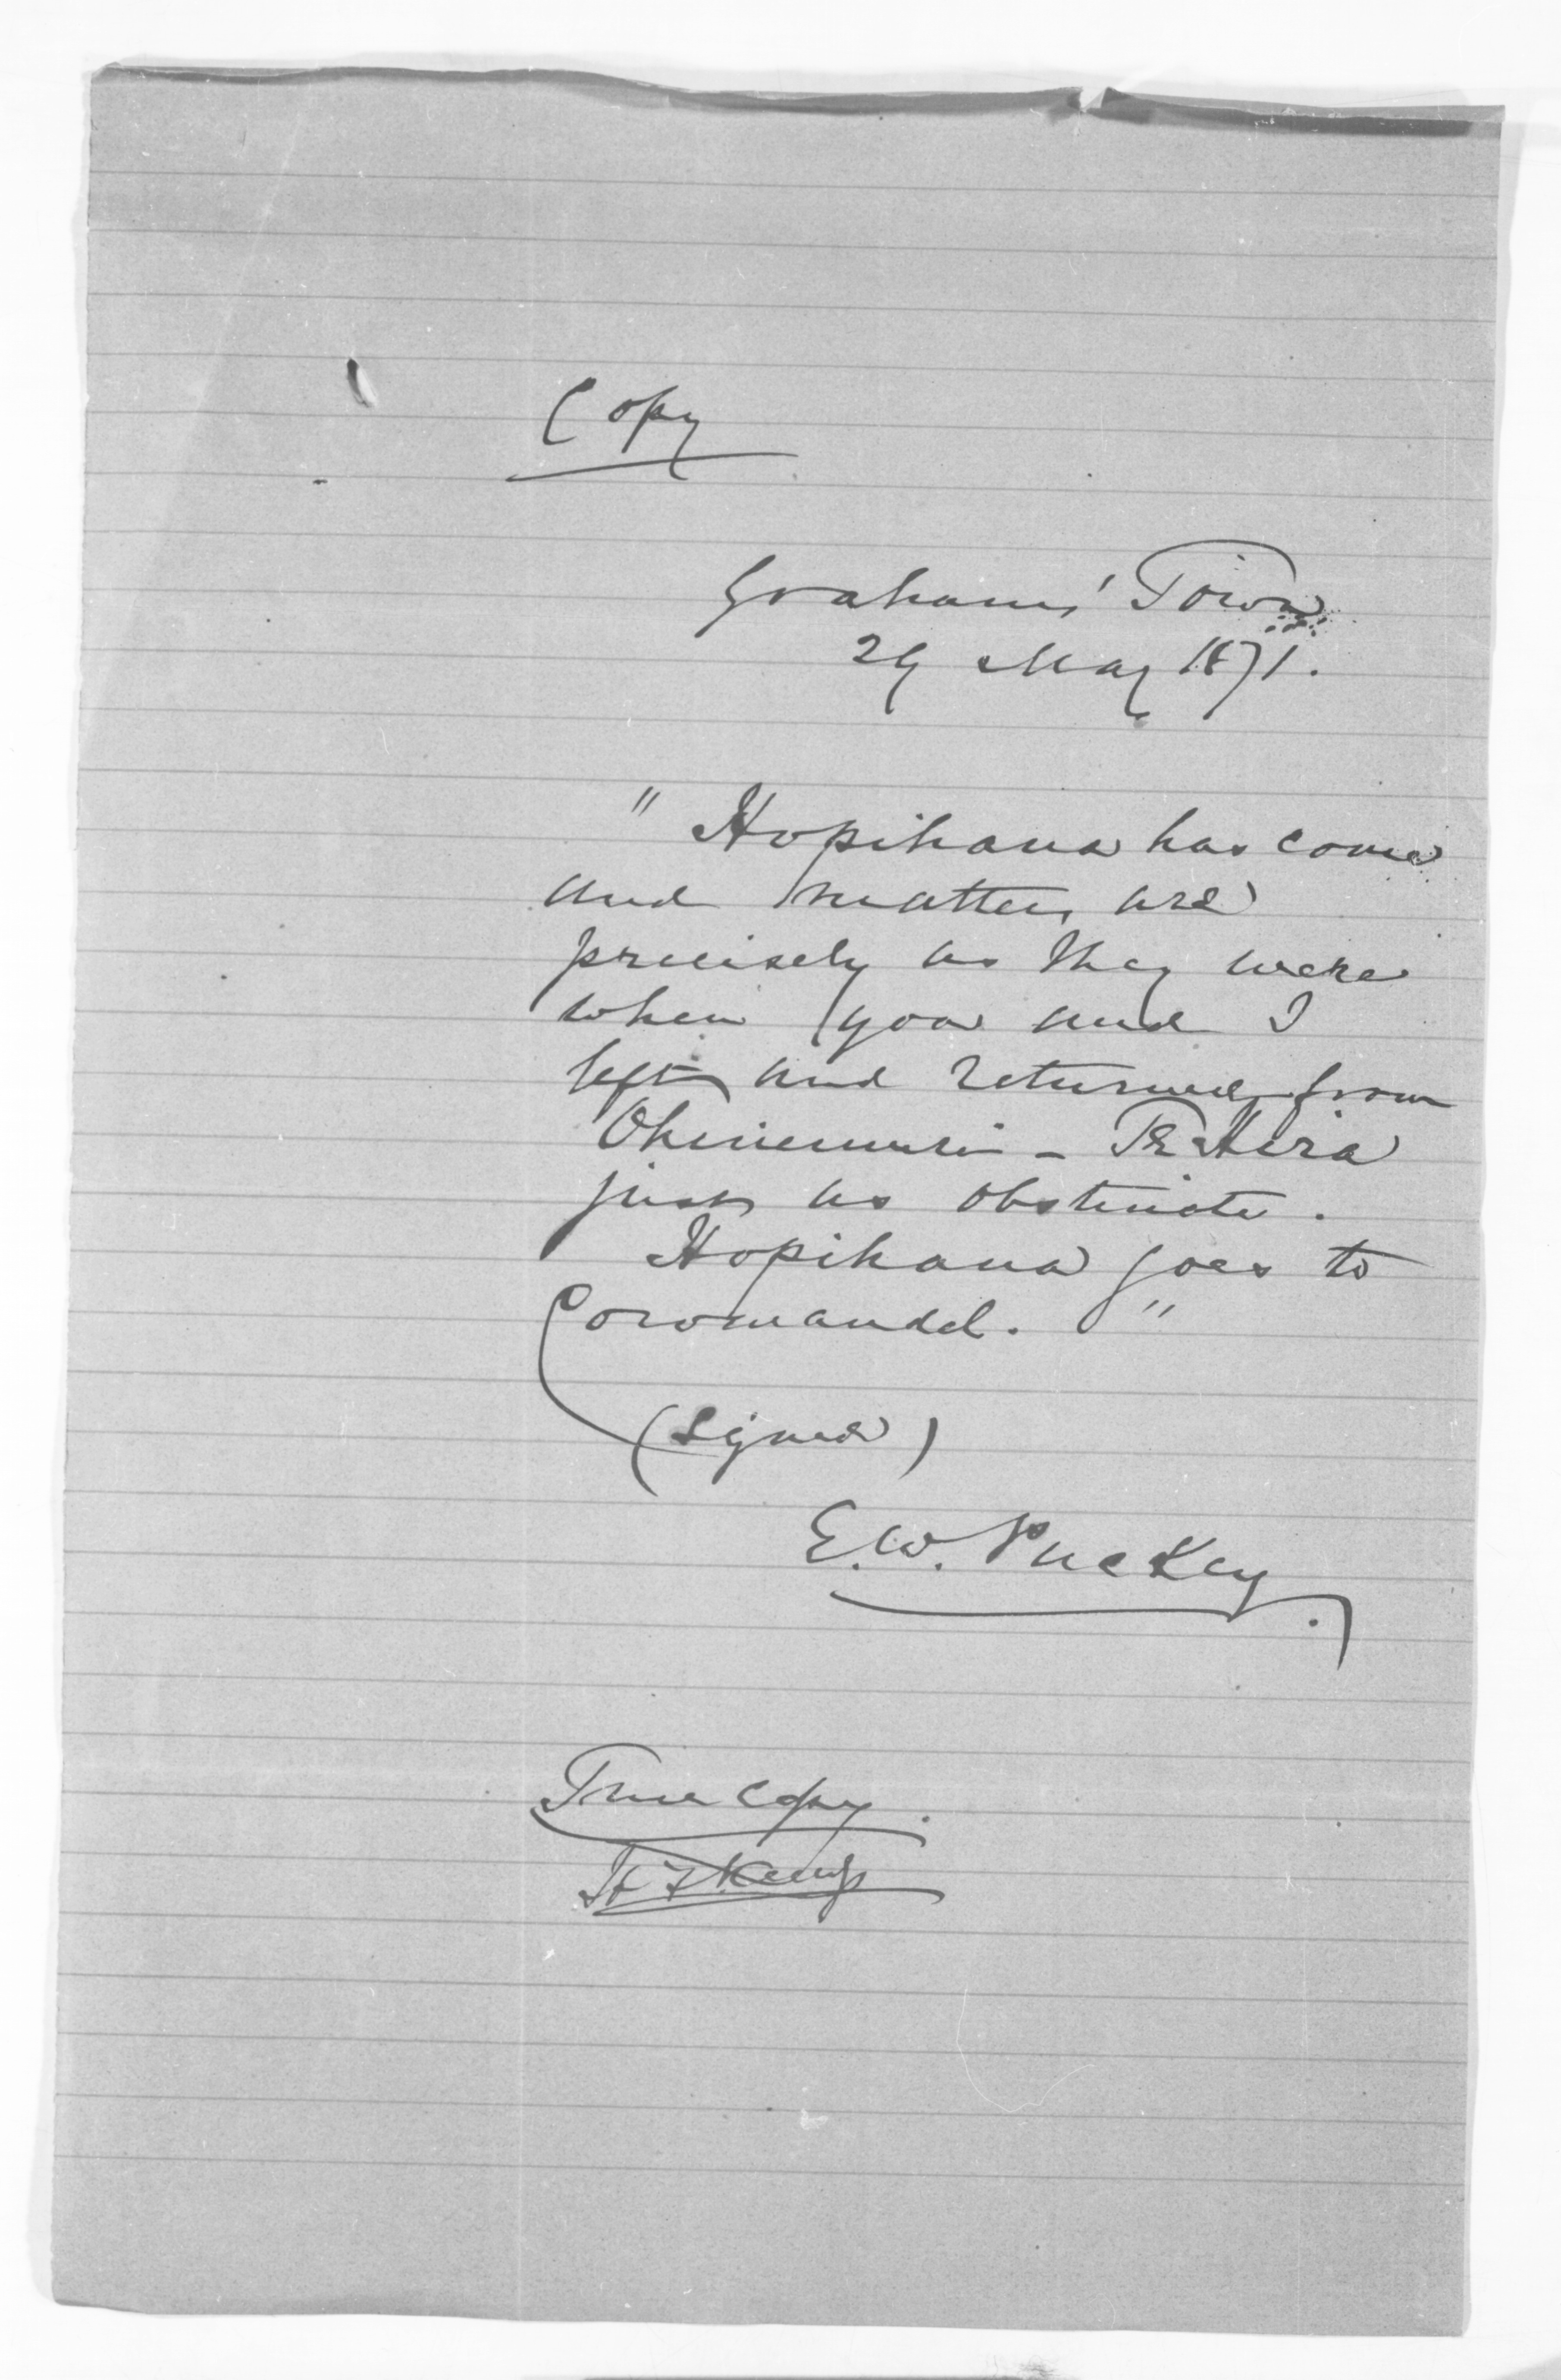 Copy
Grahams' Town
29 May 1871.
" Hopihana has come
and matters are
precisely as they were
when you and I
left and returned from
Ohinemuri - Te Hira
just as obstinate.
Hopihana goes to
Coromandel. "
(Signed)
E. W. Puckey.
True copy.
H T Kemp